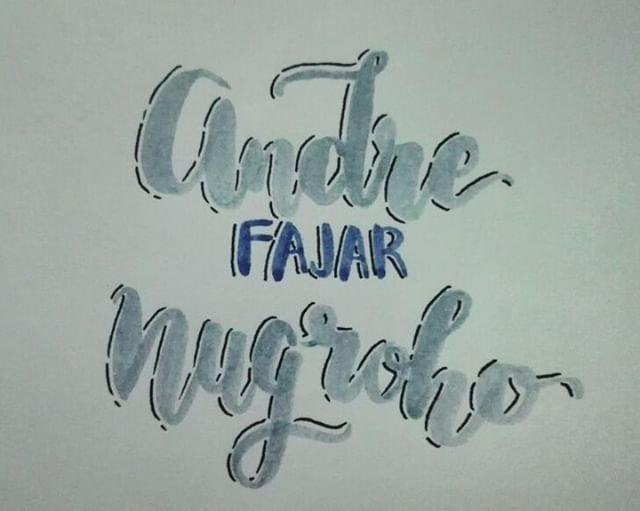 Andre
FAJAR
Nugroho